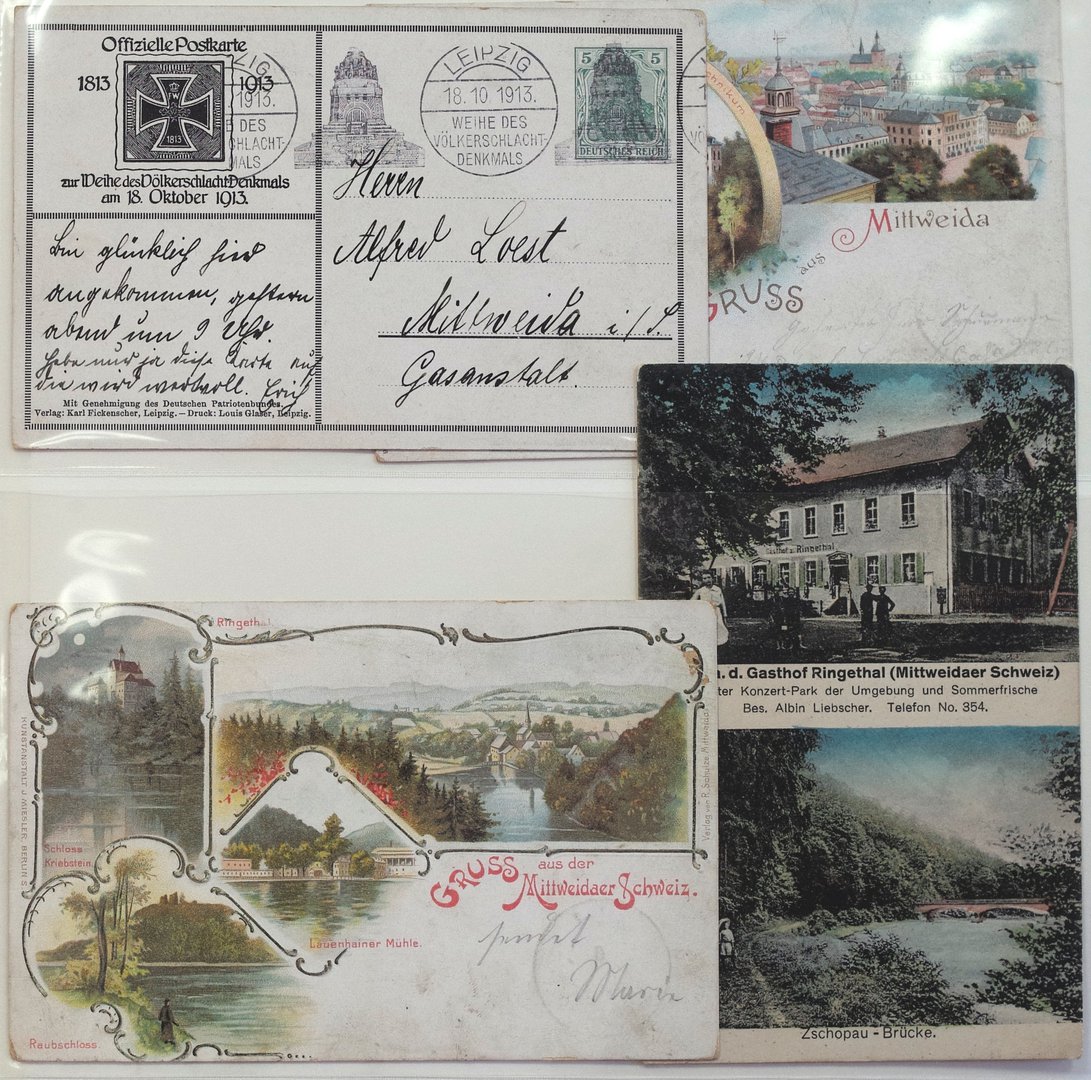 Offizielle Postkarte
1813 1913
FW
1813
zur Weihe des Völkerschlacht-Denkmals
am 18. Oktober 1913.
LEIPZIG
18.10.1913.
WEIHE DES
VÖLKERSCHLACHT-
DENKMALS
5 5
DEUTSCHES REICH
Herrn
Alfred Loest
Mittweida i/S.
Gasanstalt.
Bin glücklich hier
angekommen, gestern
abend um 9 Uhr.
Hebe nur ja diese Karte auf
die wird wertvoll. Erich
Mit Genehmigung des Deutschen Patriotenbundes.
Verlag: Karl Fickenscher, Leipzig. — Druck: Louis Glaser, Leipzig.
GRUSS aus Mittweida
Gasthof z. Ringethal
a. d. Gasthof Ringethal (Mittweidaer Schweiz)
ter Konzert-Park der Umgebung und Sommerfrische
Bes. Albin Liebscher. Telefon No. 354.
Zschopau-Brücke.
Ringethal
Schloss
Kriebstein.
Lauenhainer Mühle.
Raubschloss.
GRUSS aus der
Mittweidaer Schweiz.
sendet
Marie
KUNSTANSTALT J. MIESLER, BERLIN S.
Verlag von R. Schulze, Mittweida